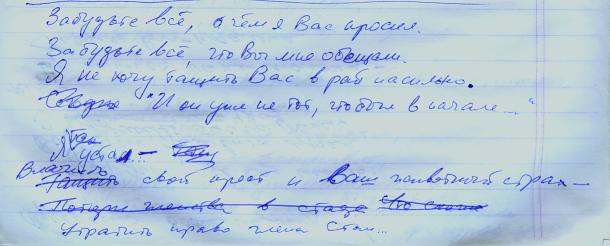 Забудьте всё, о чём я Вас просил.
Забудьте всё, что Вы мне обещали.
Я не хочу тащить Вас в рай насильно.
"И он уже не тот, что был в начале..."
Так
Я устал...
Влачить
Тащить свой крест и Ваш животный страх —
Потеря членства в стаде
Утратить право члена стаи...